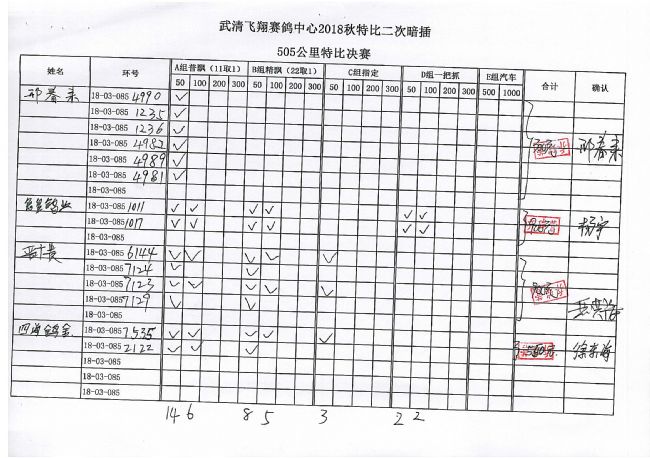 武清飞翔赛鸽中心2018秋特比二次暗插
505公里特比决赛
姓名 环号 A组普飘（11取1） B组精飘（22取1） C组指定 D组一把抓 E组汽车 合计 确认
50 100 200 300 50 100 200 300 50 100 200 300 50 100 200 300 500 1000
邢春来 18-03-085 4990 ✓
18-03-085 1235 ✓
18-03-085 1236 ✓
18-03-085 4982 ✓ 邢春来
18-03-085 4989 ✓
18-03-085 4981 ✓
18-03-085
鸽业 18-03-085 1011 ✓ ✓ ✓ ✓ ✓ ✓
18-03-085 1017 ✓ ✓ ✓ ✓ ✓ ✓ 杨宇
18-03-085
18-03-085 6144 ✓ ✓ ✓ ✓ ✓
18-03-085 7124 ✓ ✓
18-03-085 7123 ✓ ✓ ✓ ✓ ✓
18-03-085 7129 ✓ ✓
18-03-085
四海鸽舍 18-03-085 7535 ✓ ✓ ✓ ✓ ✓
18-03-085 2122 ✓ ✓ ✓
18-03-085
18-03-085
18-03-085
14 6 8 5 3 2 2